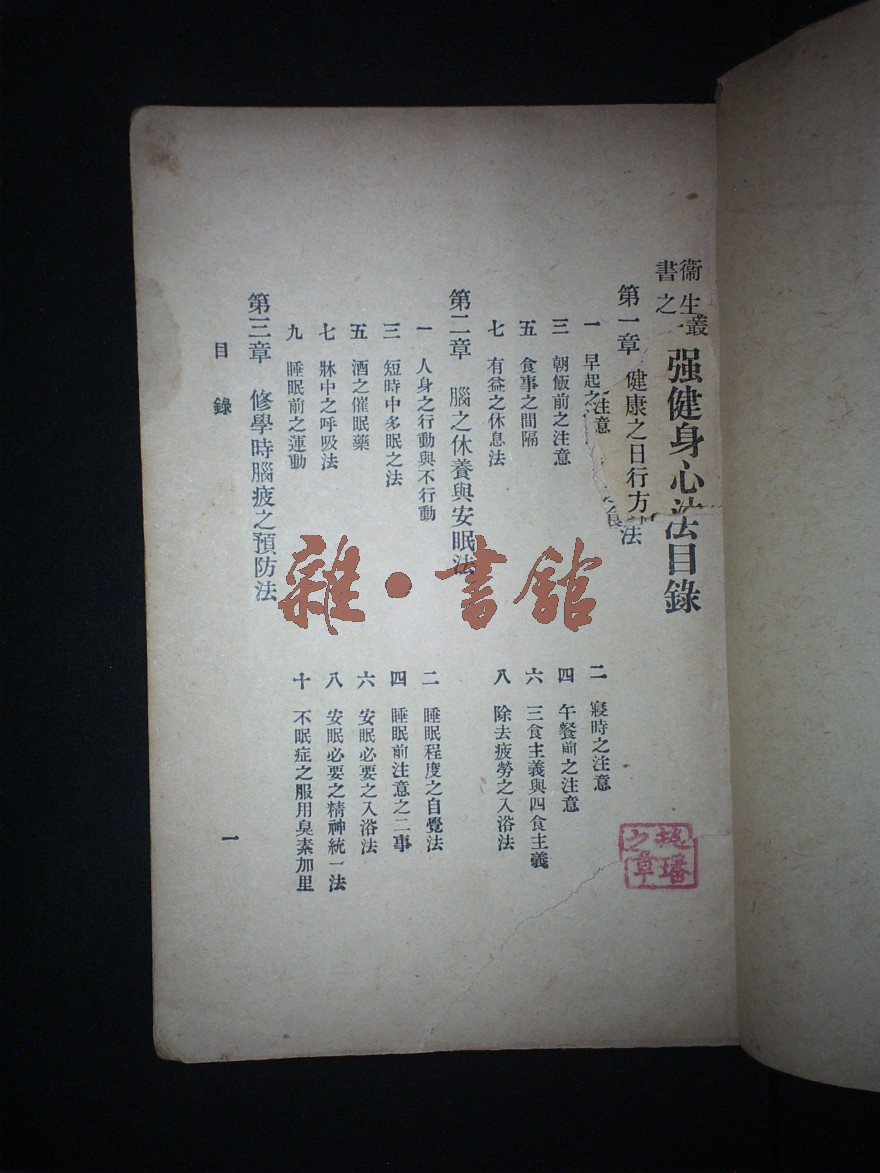 衞生叢
書之一
强健身心法目錄
第一章 健康之日行方法
一 早起之注意
二 寢時之注意
三 朝飯前之注意
四 午餐前之注意
五 食事之間隔
六 三食主義與四食主義
七 有益之休息法
八 除去疲勞之入浴法
第二章 腦之休養與安眠法
一 人身之行動與不行動
二 睡眠程度之自覺法
三 短時中多眠之法
四 睡眠前注意之二事
五 酒之催眠藥
六 安眠必要之入浴法
七 牀中之呼吸法
八 安眠必要之精神統一法
九 睡眠前之運動
十 不眠症之服用臭素加里
第三章 修學時腦疲之預防法
目錄
一
雜·書館
璠
之章